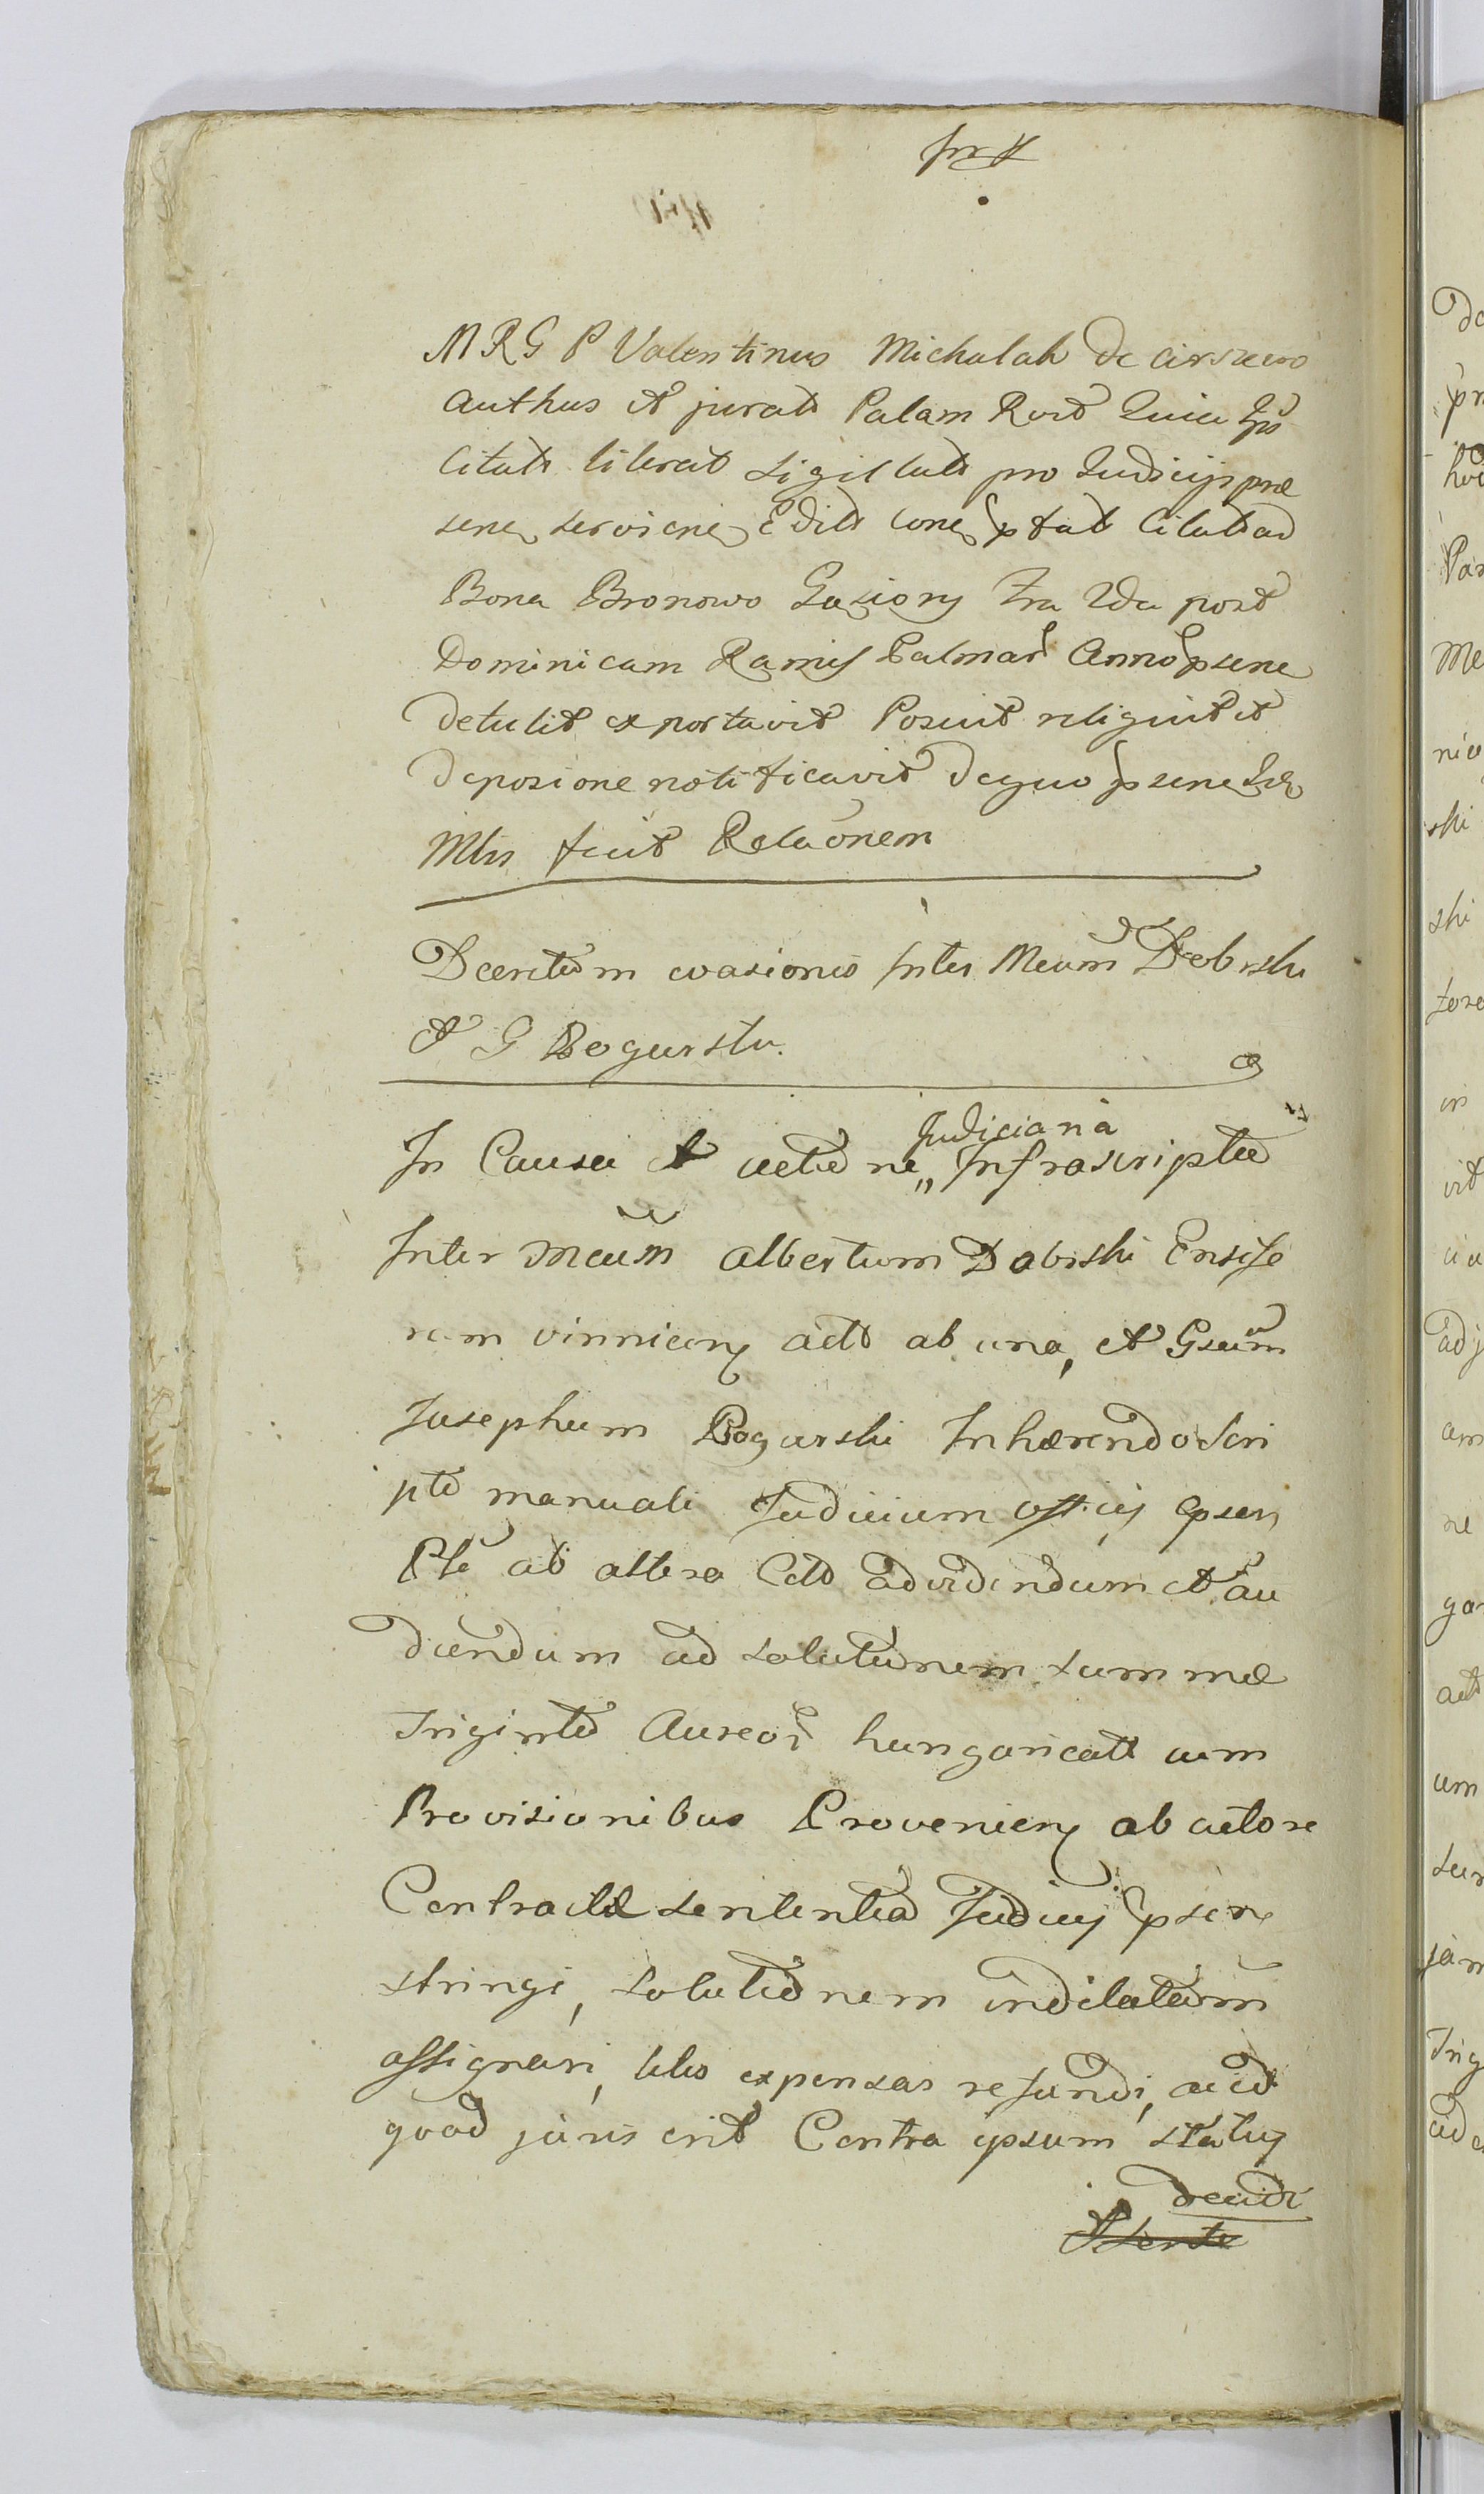 M R G P Valentinus Michalak de
authus et jurats Palam Rect Quia
Citats literat Sigillats pro Judicijs prae
sen servien Edits conc ptat Citats ad
Bona Bronowo Gasiory Fra 2da post
Dominicam Ramis Palmar Anno psene
detulit exportavit Posuit reliquit et
deposione notificavit de quo psene
Mtis fecit Relaonem
Decretum evasionis Inter Mcum Dobrski
et G Bogurski.
In Causa et actione Judiciaria Infrascripta
Inter Mcum Albertum Dobrski Ensife
rum vinnicen acto ab una, et Gsum
Josephum Bogurski Inhaerendo Scri
pto manuali Judicium officij psen
Pte ab altera Citto ad videndum et au
diendum ad solutionem summae
Triginta Aureor hungaricall cum
Provisionibus Provenien ab actore
Contractae sententia Judicij psen
stringi, solutionem indilatam
assignari, litis expensas refundi, ac id
quod juris erit Contra ipsum statuj
decidi